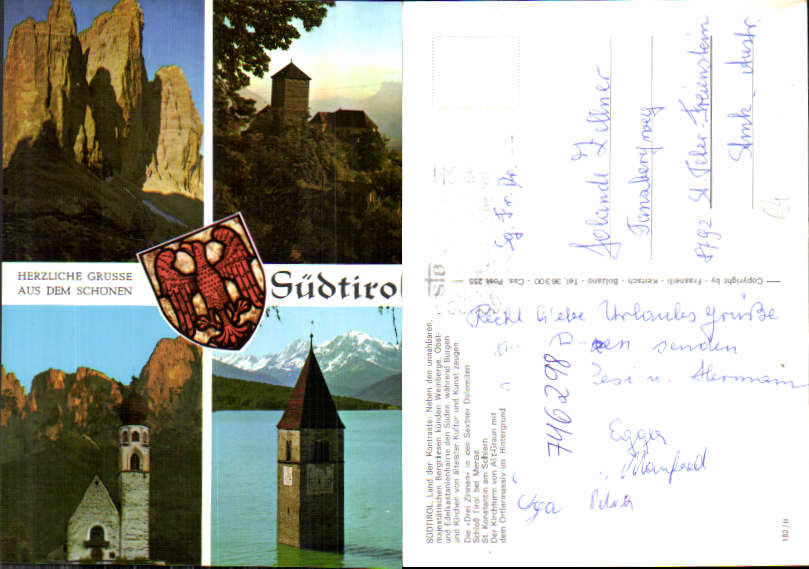 HERZLICHE GRÜSSE
AUS DEM SCHÖNEN
Südtirol
SÜDTIROL. Land der Kontraste: Neben den unnahbaren,
majestätischen Bergriesen künden Weinberge, Obst-
und Edelkastanienhaine den Süden, während Burgen
und Kirchen von ältester Kultur und Kunst zeugen
Die »Drei Zinnen« in den Sextner Dolomiten
Schloß Tirol bei Meran
St. Konstantin am Schlern
Der Kirchturm von Alt-Graun mit
dem Ortlermassiv im Hintergrund
Copyright by - Frasnelli - Keitsch - Bolzano - Tel. 36300 - Cas. Post 255
182/B
Sg. Fr. Dr.
Jolinde Zellner
Tonabergweg
8792 St Peter-Freienstein
Stmk. Austr.
Recht liebe Urlaubsgrüße
senden
Resi u. Hermann
Egger
Manfred
7416298 D